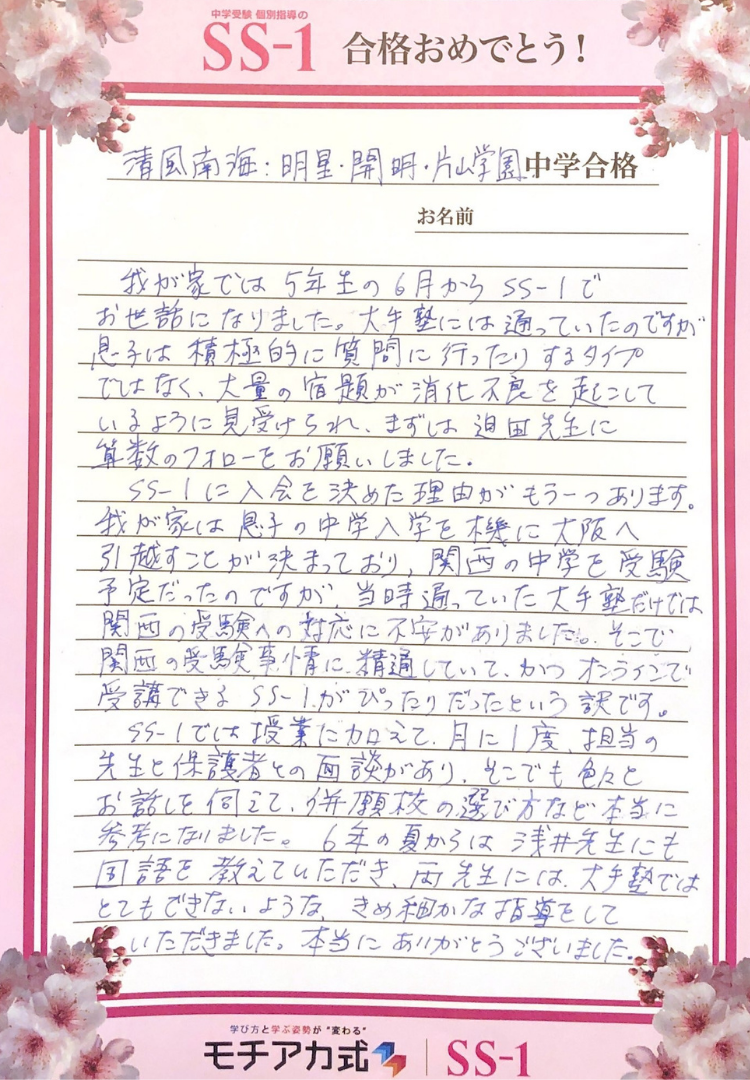 中学受験 個別指導の
SS-1 合格おめでとう!
清風南海・明星・開明・片山学園 中学合格
お名前
我が家では 5年生の6月から SS-1で
お世話になりました。大手塾には通っていたのですが
息子は積極的に質問に行ったりするタイプ
ではなく、大量の宿題が消化不良を起こして
いるように見受けられ、まずは 迫田先生に
算数のフォローをお願いしました。
SS-1に入会を決めた理由がもう一つあります。
我が家は息子の中学入学を機に大阪へ
引越すことが決まっており、関西の中学を受験
予定だったのですが、当時通っていた大手塾だけでは
関西の受験への対応に不安がありました。そこで、
関西の受験事情に精通していて、かつオンラインで
受講できるSS-1がぴったりだったという訳です。
SS-1では授業に加えて、月に1度、担当の
先生と保護者との面談があり、そこでも色々と
お話しを伺えて、併願校の選び方など本当に
参考になりました。6年の夏からは浅井先生にも
国語を教えていただき、両先生には、大手塾では
とてもできないような、きめ細かな指導をして
いただきました。本当にありがとうございました。
学び方と学ぶ姿勢が"変わる"
モチアカ式 SS-1